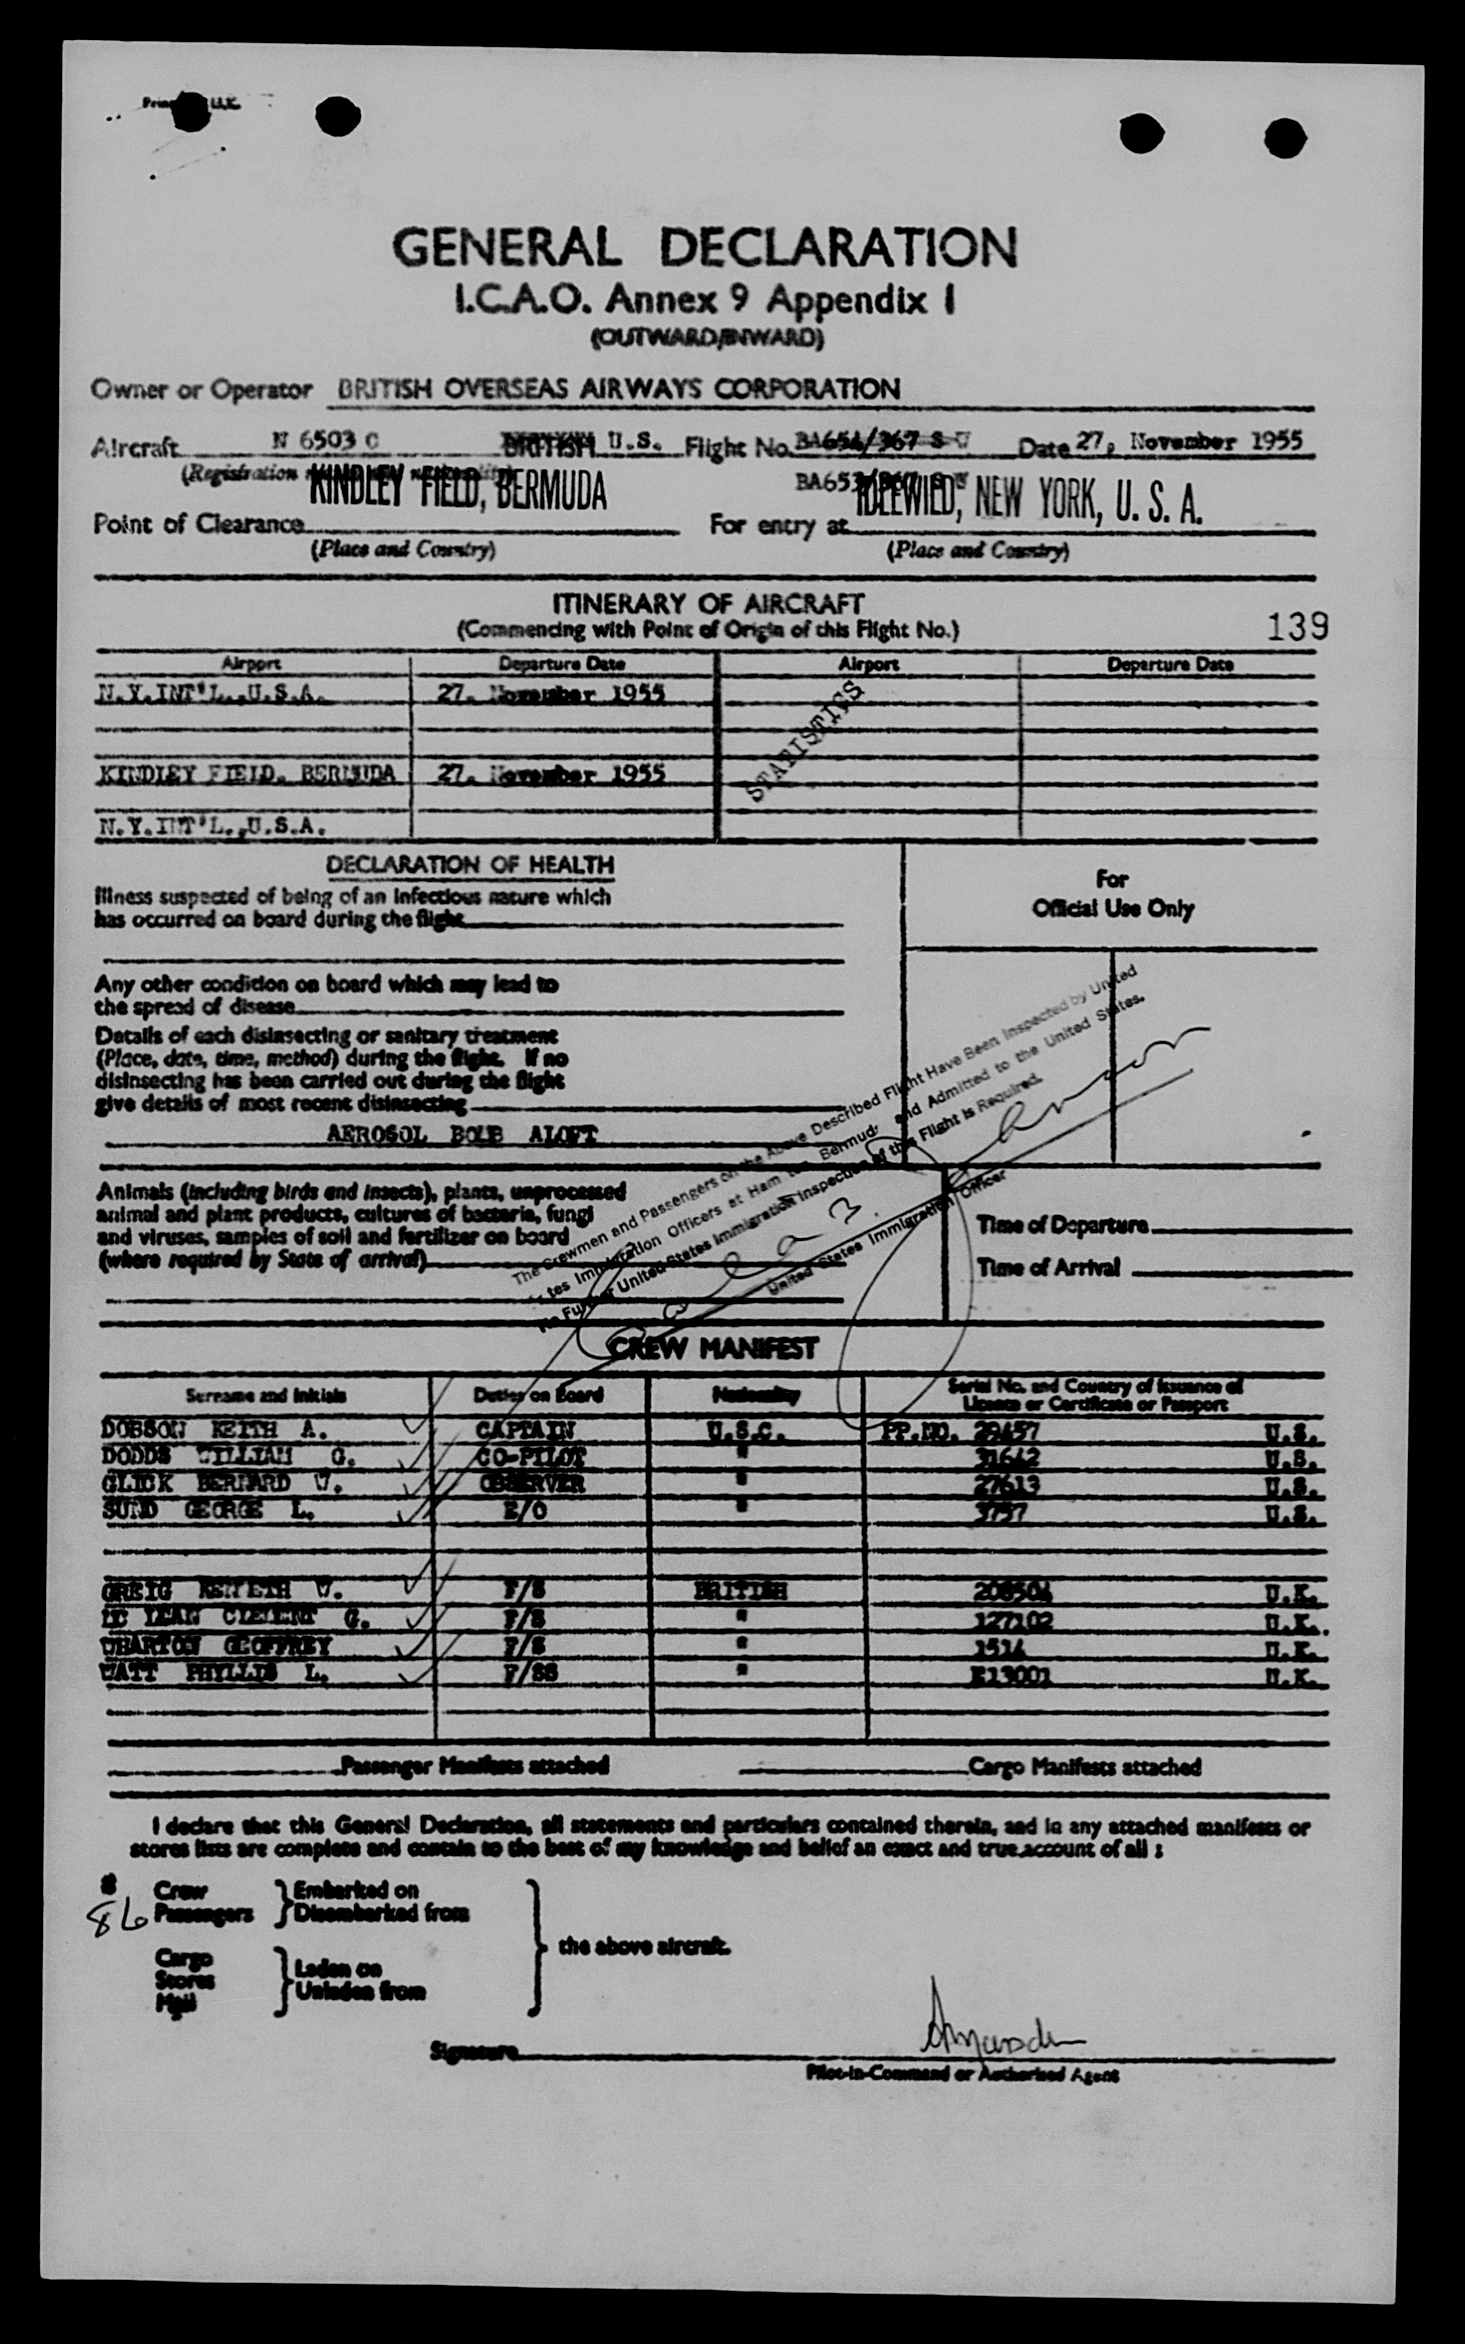 U.K.
GENERAL DECLARATION
I.C.A.O. Annex 9 Appendix I
(OUTWARD/INWARD)
Owner or Operator BRITISH OVERSEAS AIRWAYS CORPORATION
Aircraft N 6503 C BRITISH U.S. Flight No. BA654/367 S W Date 27, November 1955
(Registration
KINDLEY FIELD, BERMUDA
BA653/367
IDLEWILD, NEW YORK, U. S. A.
Point of Clearance For entry at
(Place and Country) (Place and Country)
ITINERARY OF AIRCRAFT
(Commencing with Point of Origin of this Flight No.)
139
Airport Departure Date Airport Departure Date
N.Y.INT'L.,U.S.A. 27. November 1955
STATISTICS
KINDLEY FIELD. BERMUDA 27. November 1955
N.Y.INT'L.,U.S.A.
DECLARATION OF HEALTH
Illness suspected of being of an infectious nature which
has occurred on board during the flight
For
Official Use Only
Any other condition on board which may lead to
the spread of disease
Details of each disinsecting or sanitary treatment
(Place, date, time, method) during the flight. If no
disinsecting has been carried out during the flight
give details of most recent disinsecting
AEROSOL BOMB ALOFT
The Crewmen and Passengers on the Above Described Flight Have Been Inspected by United
States Immigration Officers at Hamilton Bermuda and Admitted to the United States.
No Further United States Immigration Inspection of this Flight is Required.
United States Immigration Officer
Animals (including birds and insects), plants, unprocessed
animal and plant products, cultures of bacteria, fungi
and viruses, samples of soil and fertilizer on board
(where required by State of arrival)
Time of Departure
Time of Arrival
CREW MANIFEST
Surname and Initials Duties on Board Nationality Serial No. and Country of Issuance of
Licence or Certificate or Passport
DOBSON KEITH A. CAPTAIN U.S.C. PP.NO. 29457 U.S.
DODDS WILLIAM G. CO-PILOT " 31642 U.S.
GLICK BERNARD W. OBSERVER " 27613 U.S.
SUND GEORGE L. E/O " 3757 U.S.
GREIG KENNETH W. F/S BRITISH 208504 U.K.
MC LEAN CLEMENT G. F/S " 127102 U.K.
WHARTON GEOFFREY F/S " 1514 U.K.
WATT PHYLLIS L. F/SS " E13001 U.K.
Passenger Manifests attached Cargo Manifests attached
I declare that this General Declaration, all statements and particulars contained therein, and in any attached manifests or
stores lists are complete and contain to the best of my knowledge and belief an exact and true account of all :
8 Crew Embarked on
86 Passengers Disembarked from
the above aircraft.
Cargo
Stores Laden on
Mail Unladen from
Signature
Pilot-in-Command or Authorised Agent